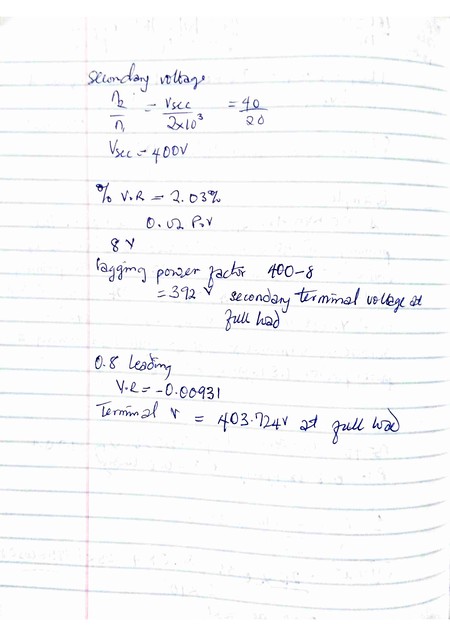 Secondary voltage
n2/n1 = Vsec/2x10³ = 40/20
Vsec = 400V
% V.R = 2.03%
0.02 P.V
8 V
lagging power factor 400-8
= 392 V secondary terminal voltage at
full load
0.8 leading
V.R = -0.00931
Terminal V = 403.724V at full load